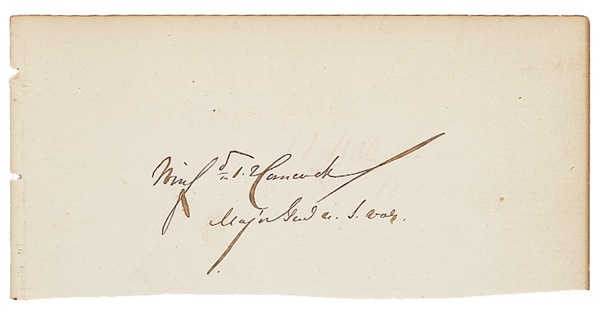 Winf^d S. Hancock
Maj'r Gen'l U. S. Vols.